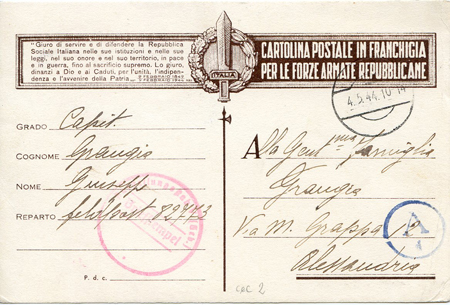 "Giuro di servire e di difendere la Repubblica
Sociale Italiana nelle sue istituzioni e nelle sue
leggi, nel suo onore e nel suo territorio, in pace
e in guerra, fino al sacrificio supremo. Lo giuro,
dinanzi a Dio e ai Caduti, per l'unità, l'indipen-
denza e l'avvenire della Patria."
ITALIA
CARTOLINA POSTALE IN FRANCHIGIA
PER LE FORZE ARMATE REPUBBLICANE
4.5.44.10-14
GRADO Capit.
COGNOME Grangia
NOME Giuseppe
REPARTO feldpost 82773
P. d. c.
Alla Gent.ma famiglia
Grangia
Via M. Grappa
Alessandria
A
4
coc 2